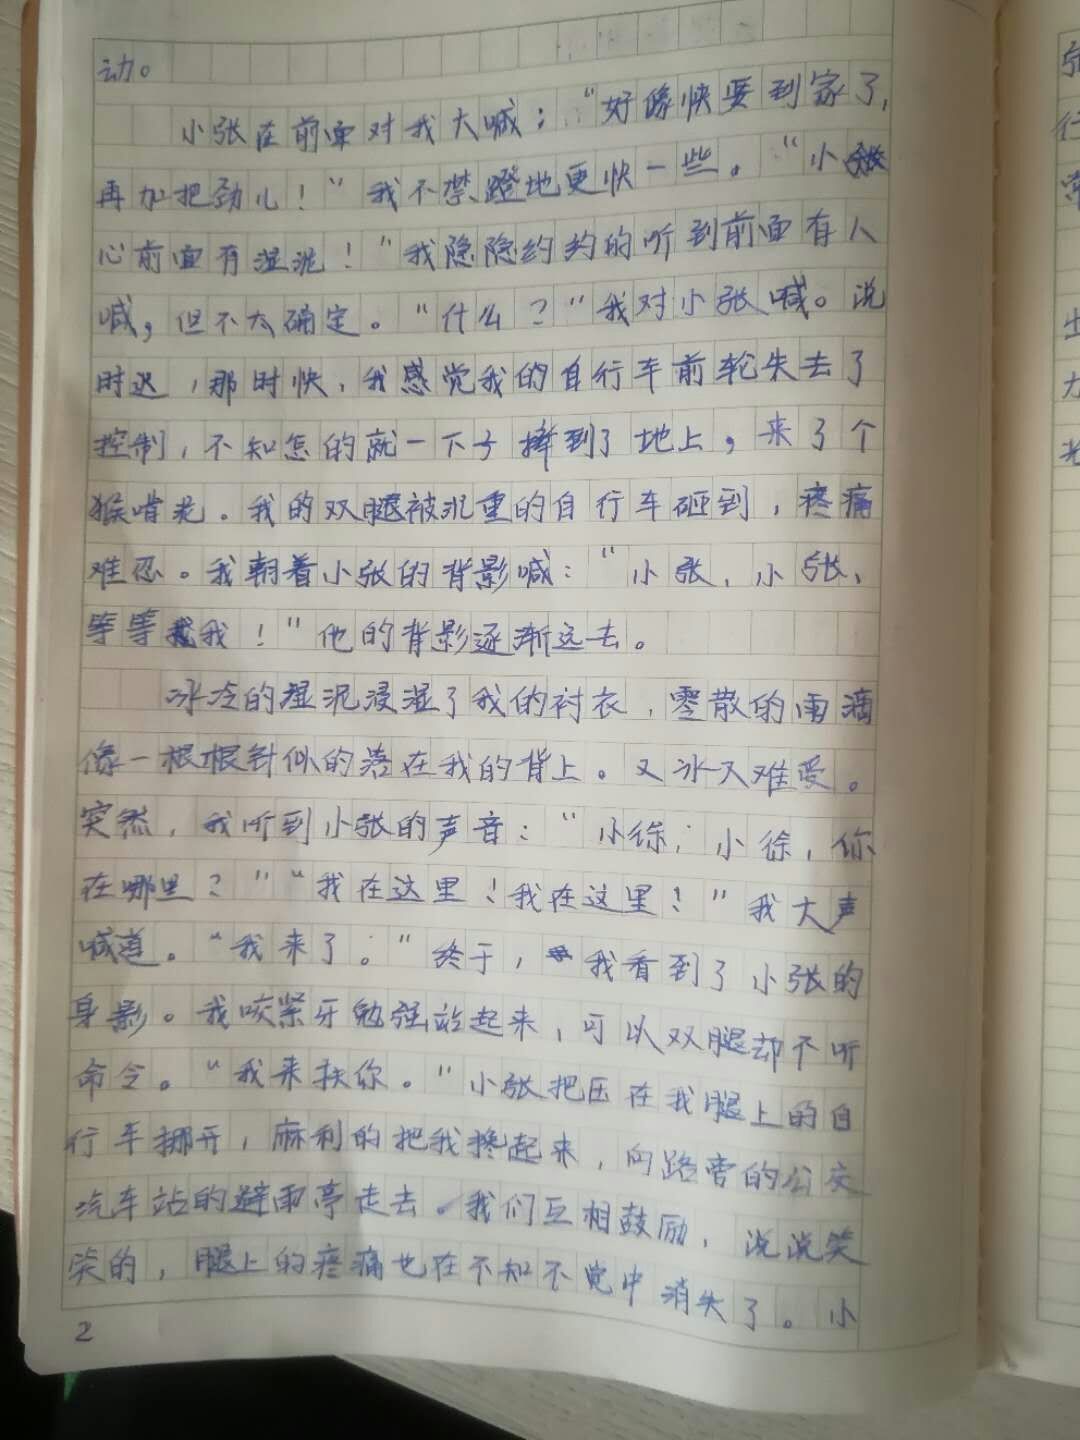 动。
小张在前面对我大喊："好像快要到家了，
再加把劲儿！"我不禁蹬地更快一些。"小
心前面有湿泥！"我隐隐约约的听到前面有人
喊，但不太确定。"什么？"我对小张喊。说
时迟，那时快，我感觉我的自行车前轮失去了
控制，不知怎的就一下子摔到了地上，来了个
猴啃羌。我的双腿被沉重的自行车砸到，疼痛
难忍。我朝着小张的背影喊："小张，小张，
等等我！"他的背影逐渐远去。
冰冷的湿泥浸湿了我的衬衣，零散的雨滴
像一根根针似的落在我的背上。又冰又难受。
突然，我听到小张的声音："小徐，小徐，你
在哪里？""我在这里！我在这里！"我大声
喊道。"我来了。"终于，我看到了小张的
身影。我咬紧牙勉强站起来，可以双腿却不听
命令。"我来扶你。"小张把压在我腿上的自
行车挪开，麻利的把我搀起来，向路旁的公交
汽车站的避雨亭走去。我们互相鼓励，说说笑
笑的，腿上的疼痛也在不知不觉中消失了。小
2